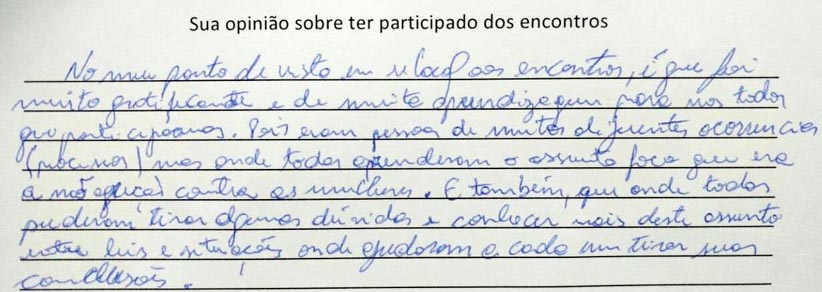 Sua opinião sobre ter participado dos encontros
No meu ponto de vista em relação aos encontros, é que foi
muito gratificante e de muita aprendizagem para nos todos
que participamos. Pois eram pessoas de muitos diferentes ocorrencias
(processos) mas onde todos aprenderam o assunto foco que era
a não contra as mulheres. E também, que onde todos
puderam tirar algumas dúvidas e conhecer mais deste assunto
entre leis e situações onde ajudaram a cada um tirar suas
conclusões.